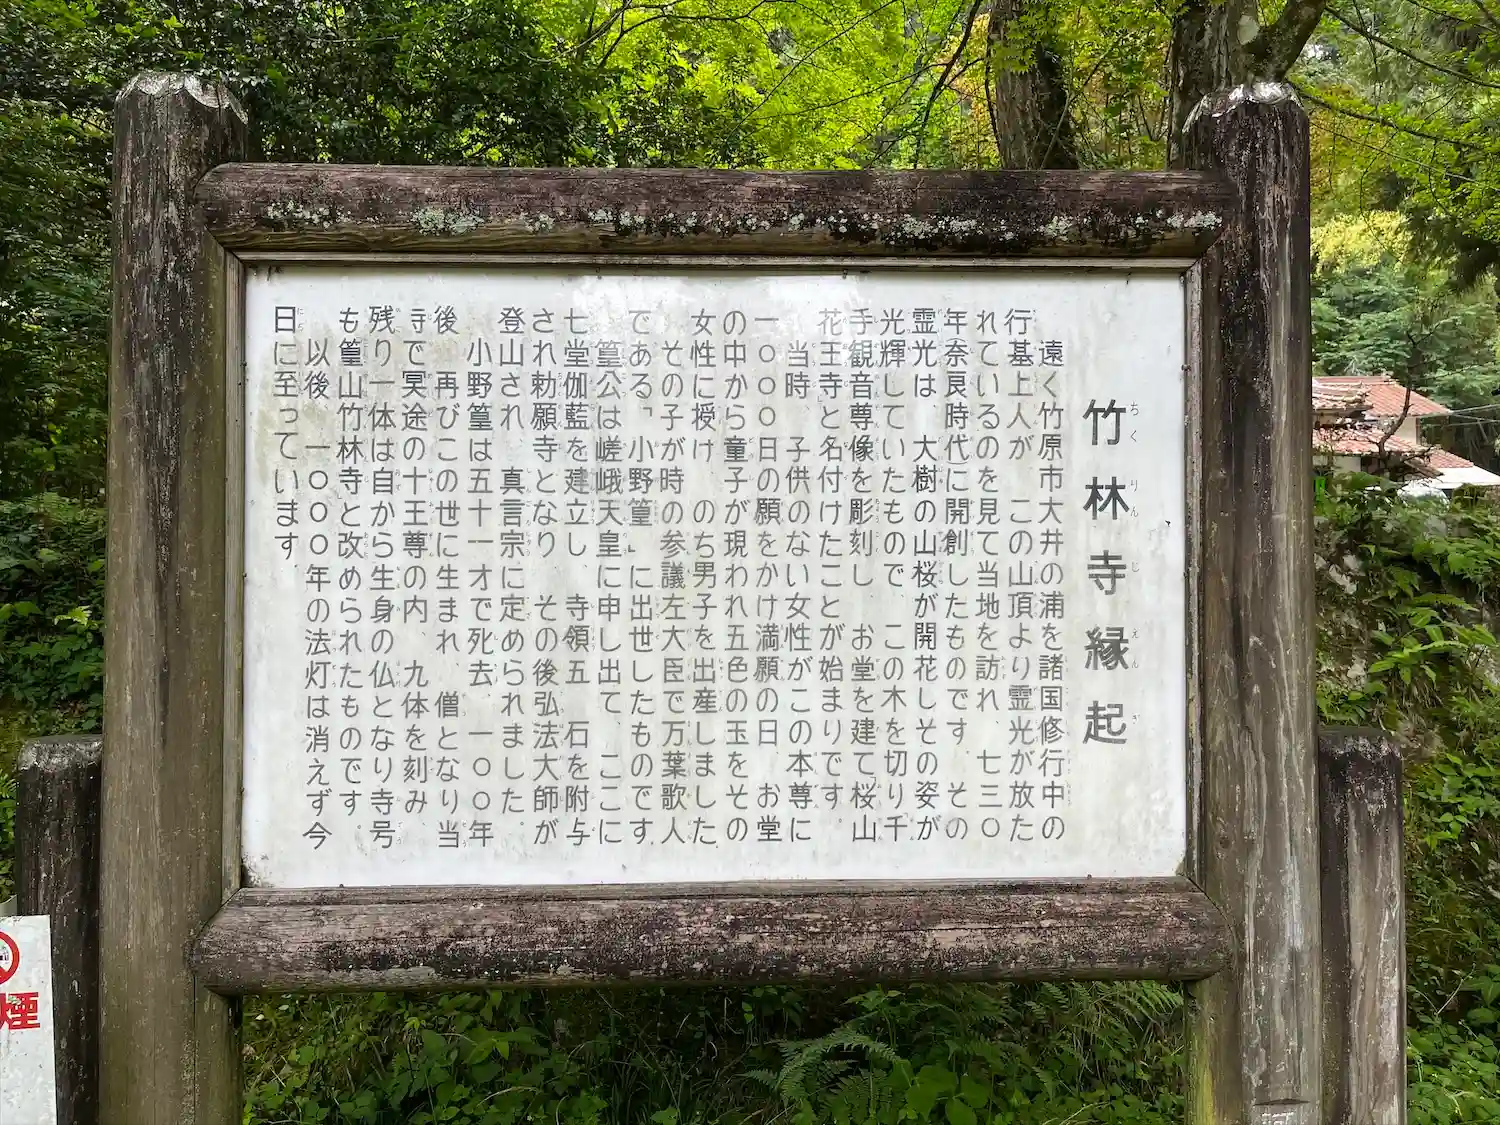 竹林寺縁起
遠く竹原市大井の浦を諸国修行中の
行基上人が この山頂より霊光が放た
れているのを見て当地を訪れ、七三〇
年奈良時代に開創したものです。その
霊光は、大樹の山桜が開花しその姿が
光輝していたもので、この木を切り千
手観音尊像を彫刻し お堂を建て桜山
花王寺と名付けたことが始まりです。
当時、子供のない女性がこの本尊に
一〇〇〇日の願をかけ満願の日 お堂
の中から童子が現われ五色の玉をその
女性に授け のち男子を出産しました
その子が時の参議左大臣で万葉歌人
である「小野篁」に出世したものです
篁公は嵯峨天皇に申し出て、ここに
七堂伽藍を建立し 寺領五 石を附与
され勅願寺となり その後弘法大師が
登山され、真言宗に定められました。
小野篁は五十一才で死去 一〇〇年
後 再びこの世に生まれ、僧となり当
寺で冥途の十王尊の内、九体を刻み、
残り一体は自から生身の仏となり寺号
も篁山竹林寺と改められたものです。
以後、一〇〇〇年の法灯は消えず今
日に至っています.
煙